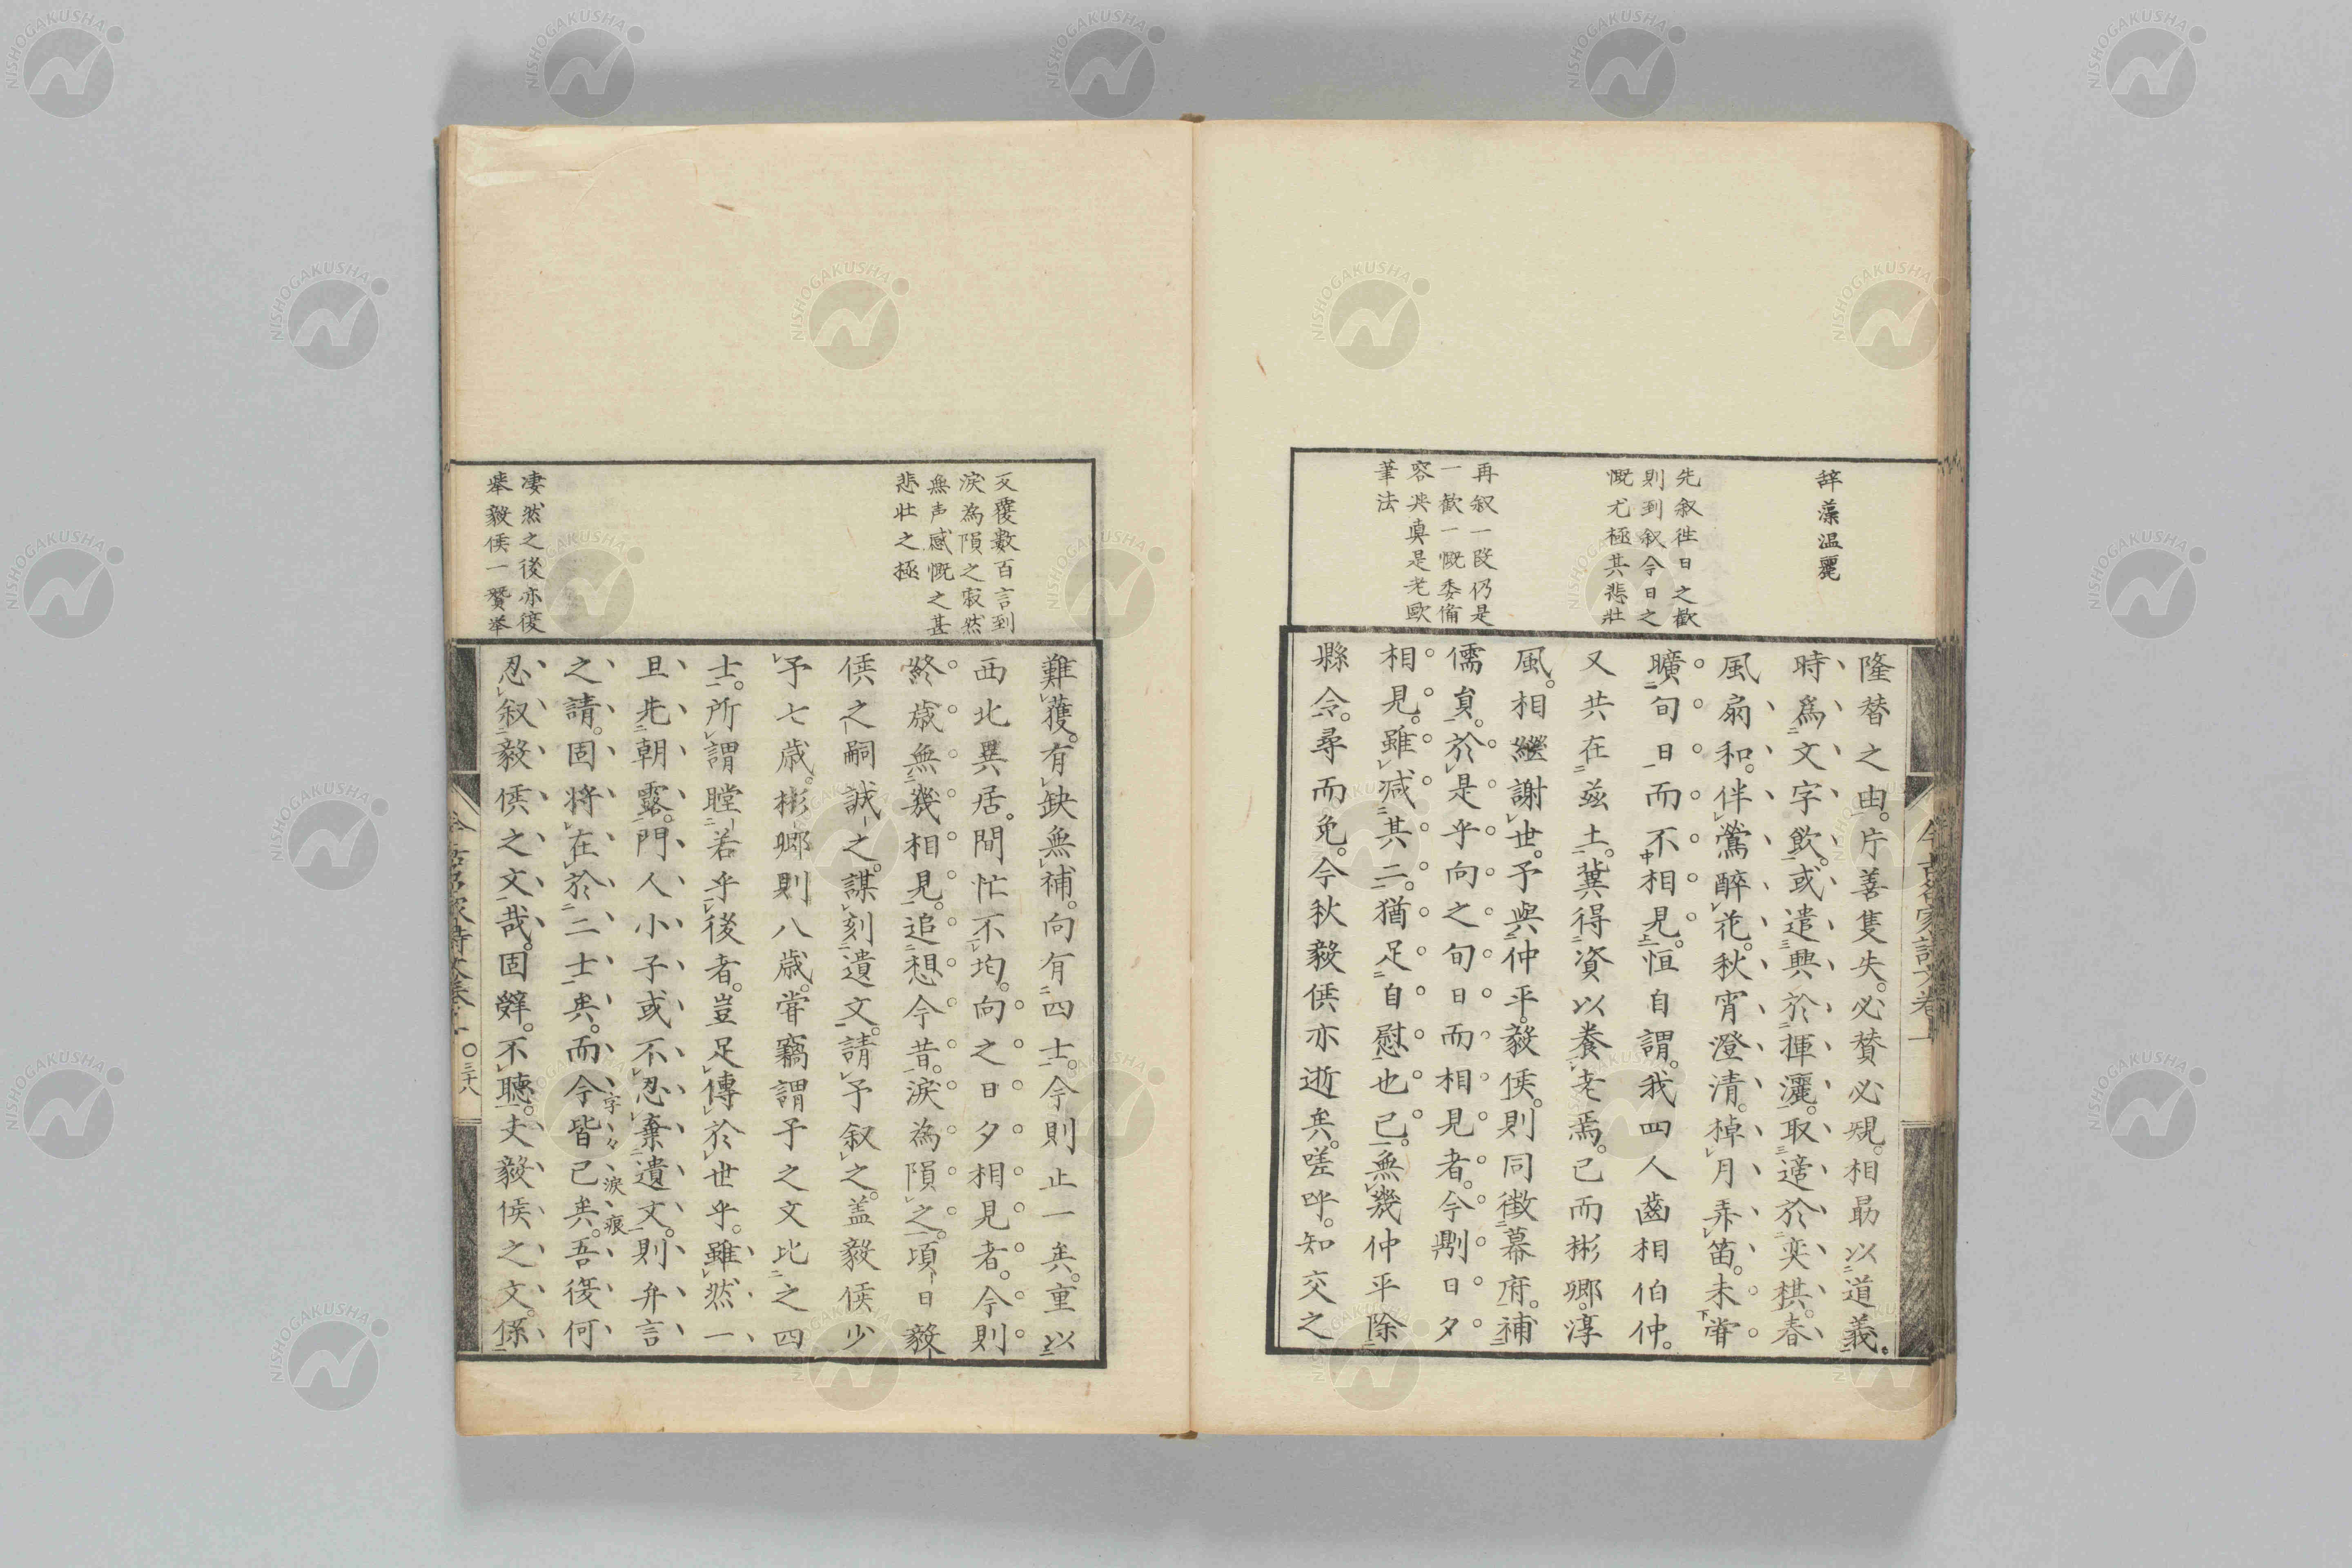 辞藻温麗
先叙徃日之歡
則到叙今日之
慨尤極其悲壮
再叙一段仍是
一歡一慨委備
容與真是老歐
筆法
隆替之由。片善隻失。必賛必規。相勗以道義。
時爲文字飲。或遣興於揮灑。取適於奕棋。春
風扇和。伴鶯醉花。秋宵澄清。棹月弄笛。未甞
曠旬日而不相見。恒自謂。我四人齒相伯仲。
又共在茲土。冀得資以養老焉。已而彬卿。淳
風。相繼謝世。予與仲平。毅侯。則同徴幕府。補
儒員。於是乎向之旬日而相見者。今剛日夕
相見。雖减其二。猶足自慰也已。無幾仲平除
縣令。尋而免。今秋毅侯亦逝矣。嗟呼。知交之
今古名家詩文卷一
難獲。有缺無補。向有四士。今則止一矣。重以
西北異居。間忙不均。向之日夕相見者。今則
終歳無幾相見。追想今昔。淚為隕之。頃日毅
侯之嗣誠之。謀刻遺文。請予叙之。盖毅侯少
予七歳。彬卿則八歳。甞竊謂予之文比之四
士。所謂瞠若乎後者。豈足傳於世乎。雖然一
旦先朝露。門人小子或不忍棄遺文。則弁言
之請。固將在於二士矣。而今皆已矣。吾復何
忍叙毅侯之文哉。固辤。不聽。丈毅侯之文。係
字々淚痕
反覆數百言到
淚為隕之寂然
無声感慨之甚
悲壮之極
凄然之後亦復
擧毅侯一賛挙
三十八